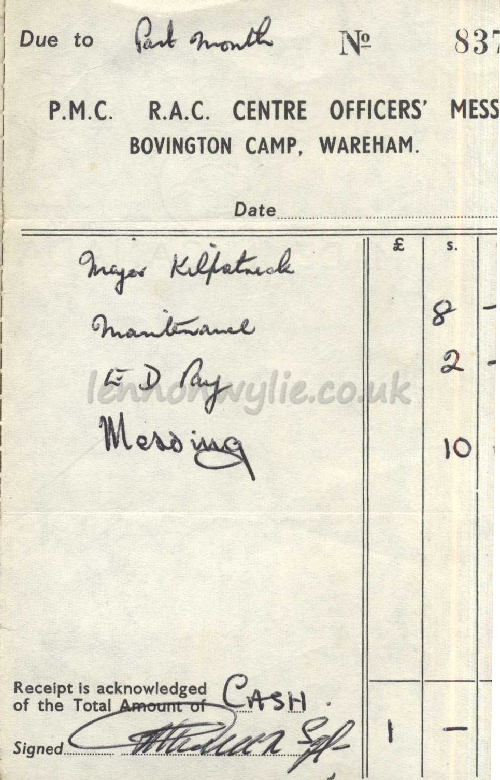 Due to Past month Nº 837
P.M.C. R.A.C. CENTRE OFFICERS' MESS
BOVINGTON CAMP, WAREHAM.
Date
£ s.
Major Kilpatrick
Maintenance 8 -
E D Pay 2 -
lennonwylie.co.uk
Messing 10
Receipt is acknowledged
of the Total Amount of CASH. 1 -
Signed